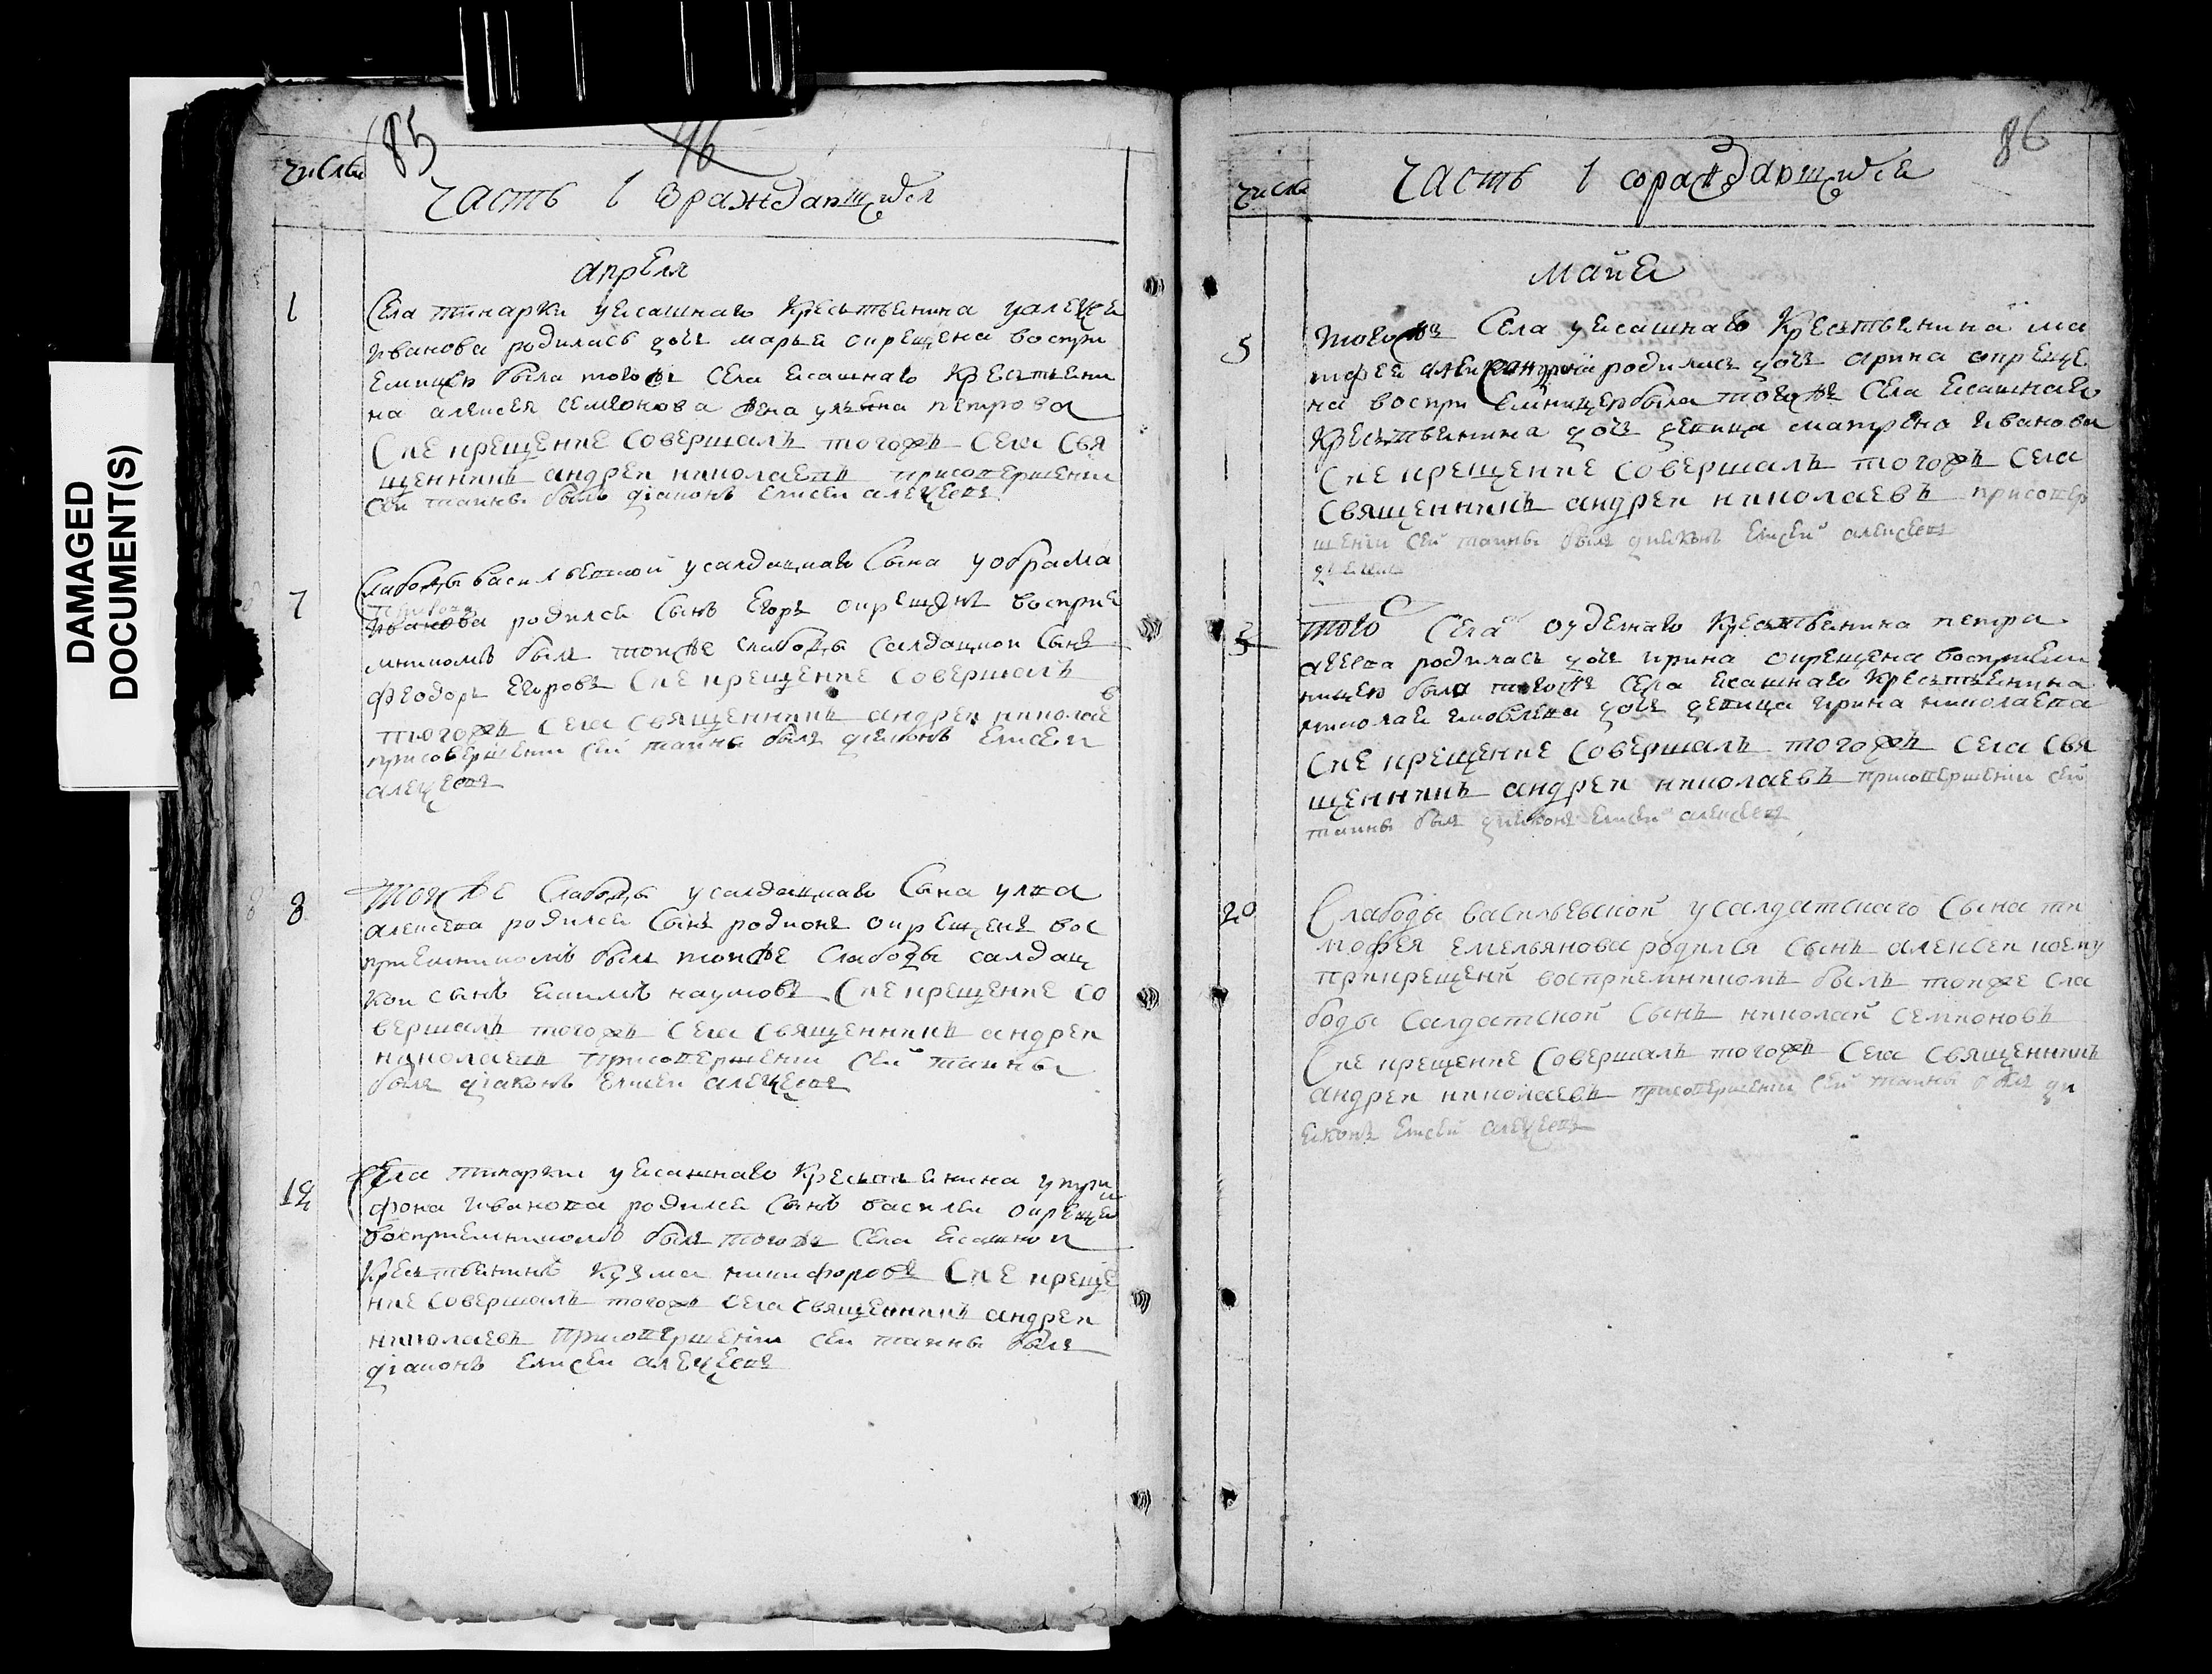 DAMAGED
DOCUMENT(S)
числа
85
часть 1 враждающихся
апреля
1
Села тинарки уясашнаго крестьянина уалеѯея
иванова родилась дочь марья окрещена воспри
емницею была тогожъ села ясашнаго крестьяни
на алексея семионова жена ульяна петрова
сие крещение совершалъ тогожъ села свя
щенникъ андреи николаевъ присовершении
сеи таины былъ діаконъ елисеи алеѯеевъ
7
Слабоды васильевской усалдацкаго сына уобрама
иванова родился сынъ егоръ окрещенъ восприе
мникомъ былъ тоижѣ слабоды салдацкои сынъ
феодоръ егоровъ сие крещение совершалъ
тогожъ села священникъ андреи николаевъ
присовершении сеи таины былъ діяконъ елисеи
алеѯеевъ
8
тоиже слабоды усалдацкаго сына
алексева родился сынъ родионъ окрещенъ вос
приемникомъ былъ тоиже слабоды салдац
кои сынъ екимъ наумовъ сие крещение со
вершалъ тогожъ села священникъ андреи
николаевъ присовершении сеи таины
былъ діаконъ елисеи алеѯеевъ
Села тинарки уясашнаго крестьянина утри
фона иванова родился сынъ василеи окрещен
восприемникомъ былъ тогожъ села ясашнои
крестьянинъ кузма никифоровъ сие креще
ние совершалъ тогожъ села священникъ андреи
николаевъ присовершении сеи таины былъ
діаконъ елисеи алеѯеевъ
86
числа
часть 1 ораждающихся
майя
5
тогожъ села уясашнаго крестьянина ма
тфея родилась дочь арина окреще
на восприемницею была тогожъ села ясашнаго
крестьянина дочь девица матрена иванова
сие крещение совершалъ тогожъ села
священникъ андреи николаевъ присовер
шении сеи таины былъ дияконъ елисеи алексеевъ
того села оуделнаго крестьянина петра
авеева родилась дочь ирина окрещена восприем
ницею была тогожъ села ясашнаго крестьянина
николая дочь девица ирина николаева
сие крещение совершалъ тогожъ села свя
щенникъ андреи николаевъ присовершении сей
таины былъ дияконъ елисеи алексеевъ
20
Слабоды васильевской усалдатскаго сына ти
мофея емельянова родился сынъ алексеи коему
прикрещений восприемникомъ былъ тоиже сла
боды салдатской сынъ николай семионовъ
сие крещение совершалъ тогожъ села священникъ
андреи николаевъ присовершении сей таины былъ ди
яконъ елисей алеѯеевъ